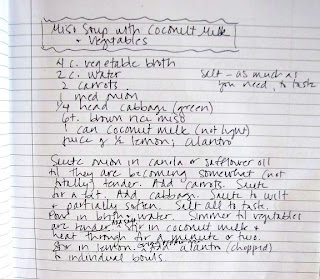 Miso Soup with Coconut Milk
+ Vegetables
4 c. vegetable broth
2 c. water
2 carrots
1 med onion
1/4 head cabbage (green)
6 t. brown rice miso
1 can coconut milk (not light)
juice of 1/2 lemon; cilantro
Salt - as much as
you need, to taste
Saute onion in canola or safflower oil
til they are becoming somewhat (not
totally) tender. Add carrots. Saute
for a bit. Add cabbage. Saute to wilt
+ partially soften. Salt all to taste.
Pour in broth + water. Simmer til vegetables
are tender. Stir in coconut milk +
heat through for a minute or two.
Stir in lemon. cilantro (chopped)
to individual bowls.